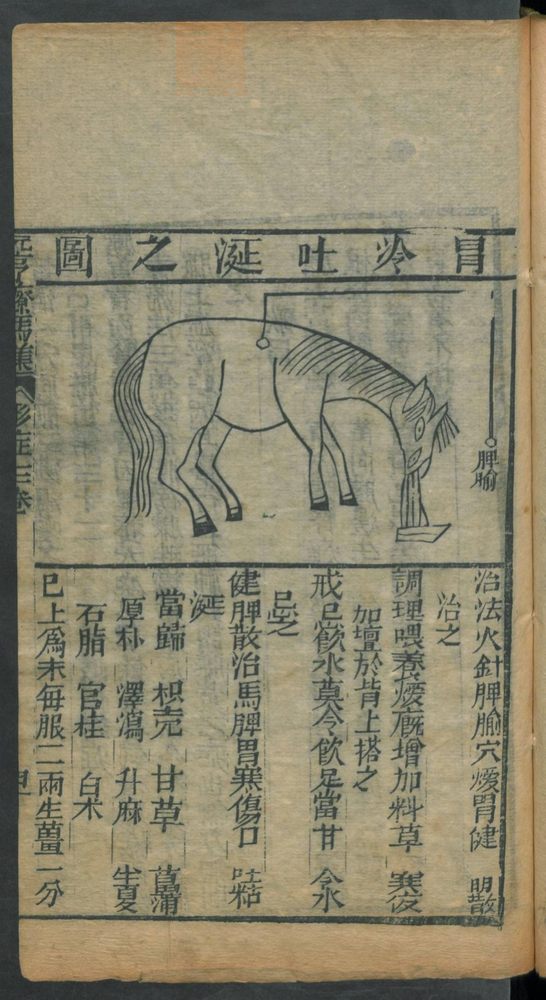 胃冷吐涎之圖
脾腧
治法火針脾腧穴煖胃健 散
治之
調理喂養煖廐增加料草 夜
加氊於背上搭之
戒忌飲水莫令飲足當 水
忌之
健脾散治馬脾胃寒傷口吐粘
涎
當歸 枳壳 甘草 菖蒲
厚朴 澤瀉 升麻
石脂 官桂 白术
已上爲末每服二兩生薑一分
元亨療馬集